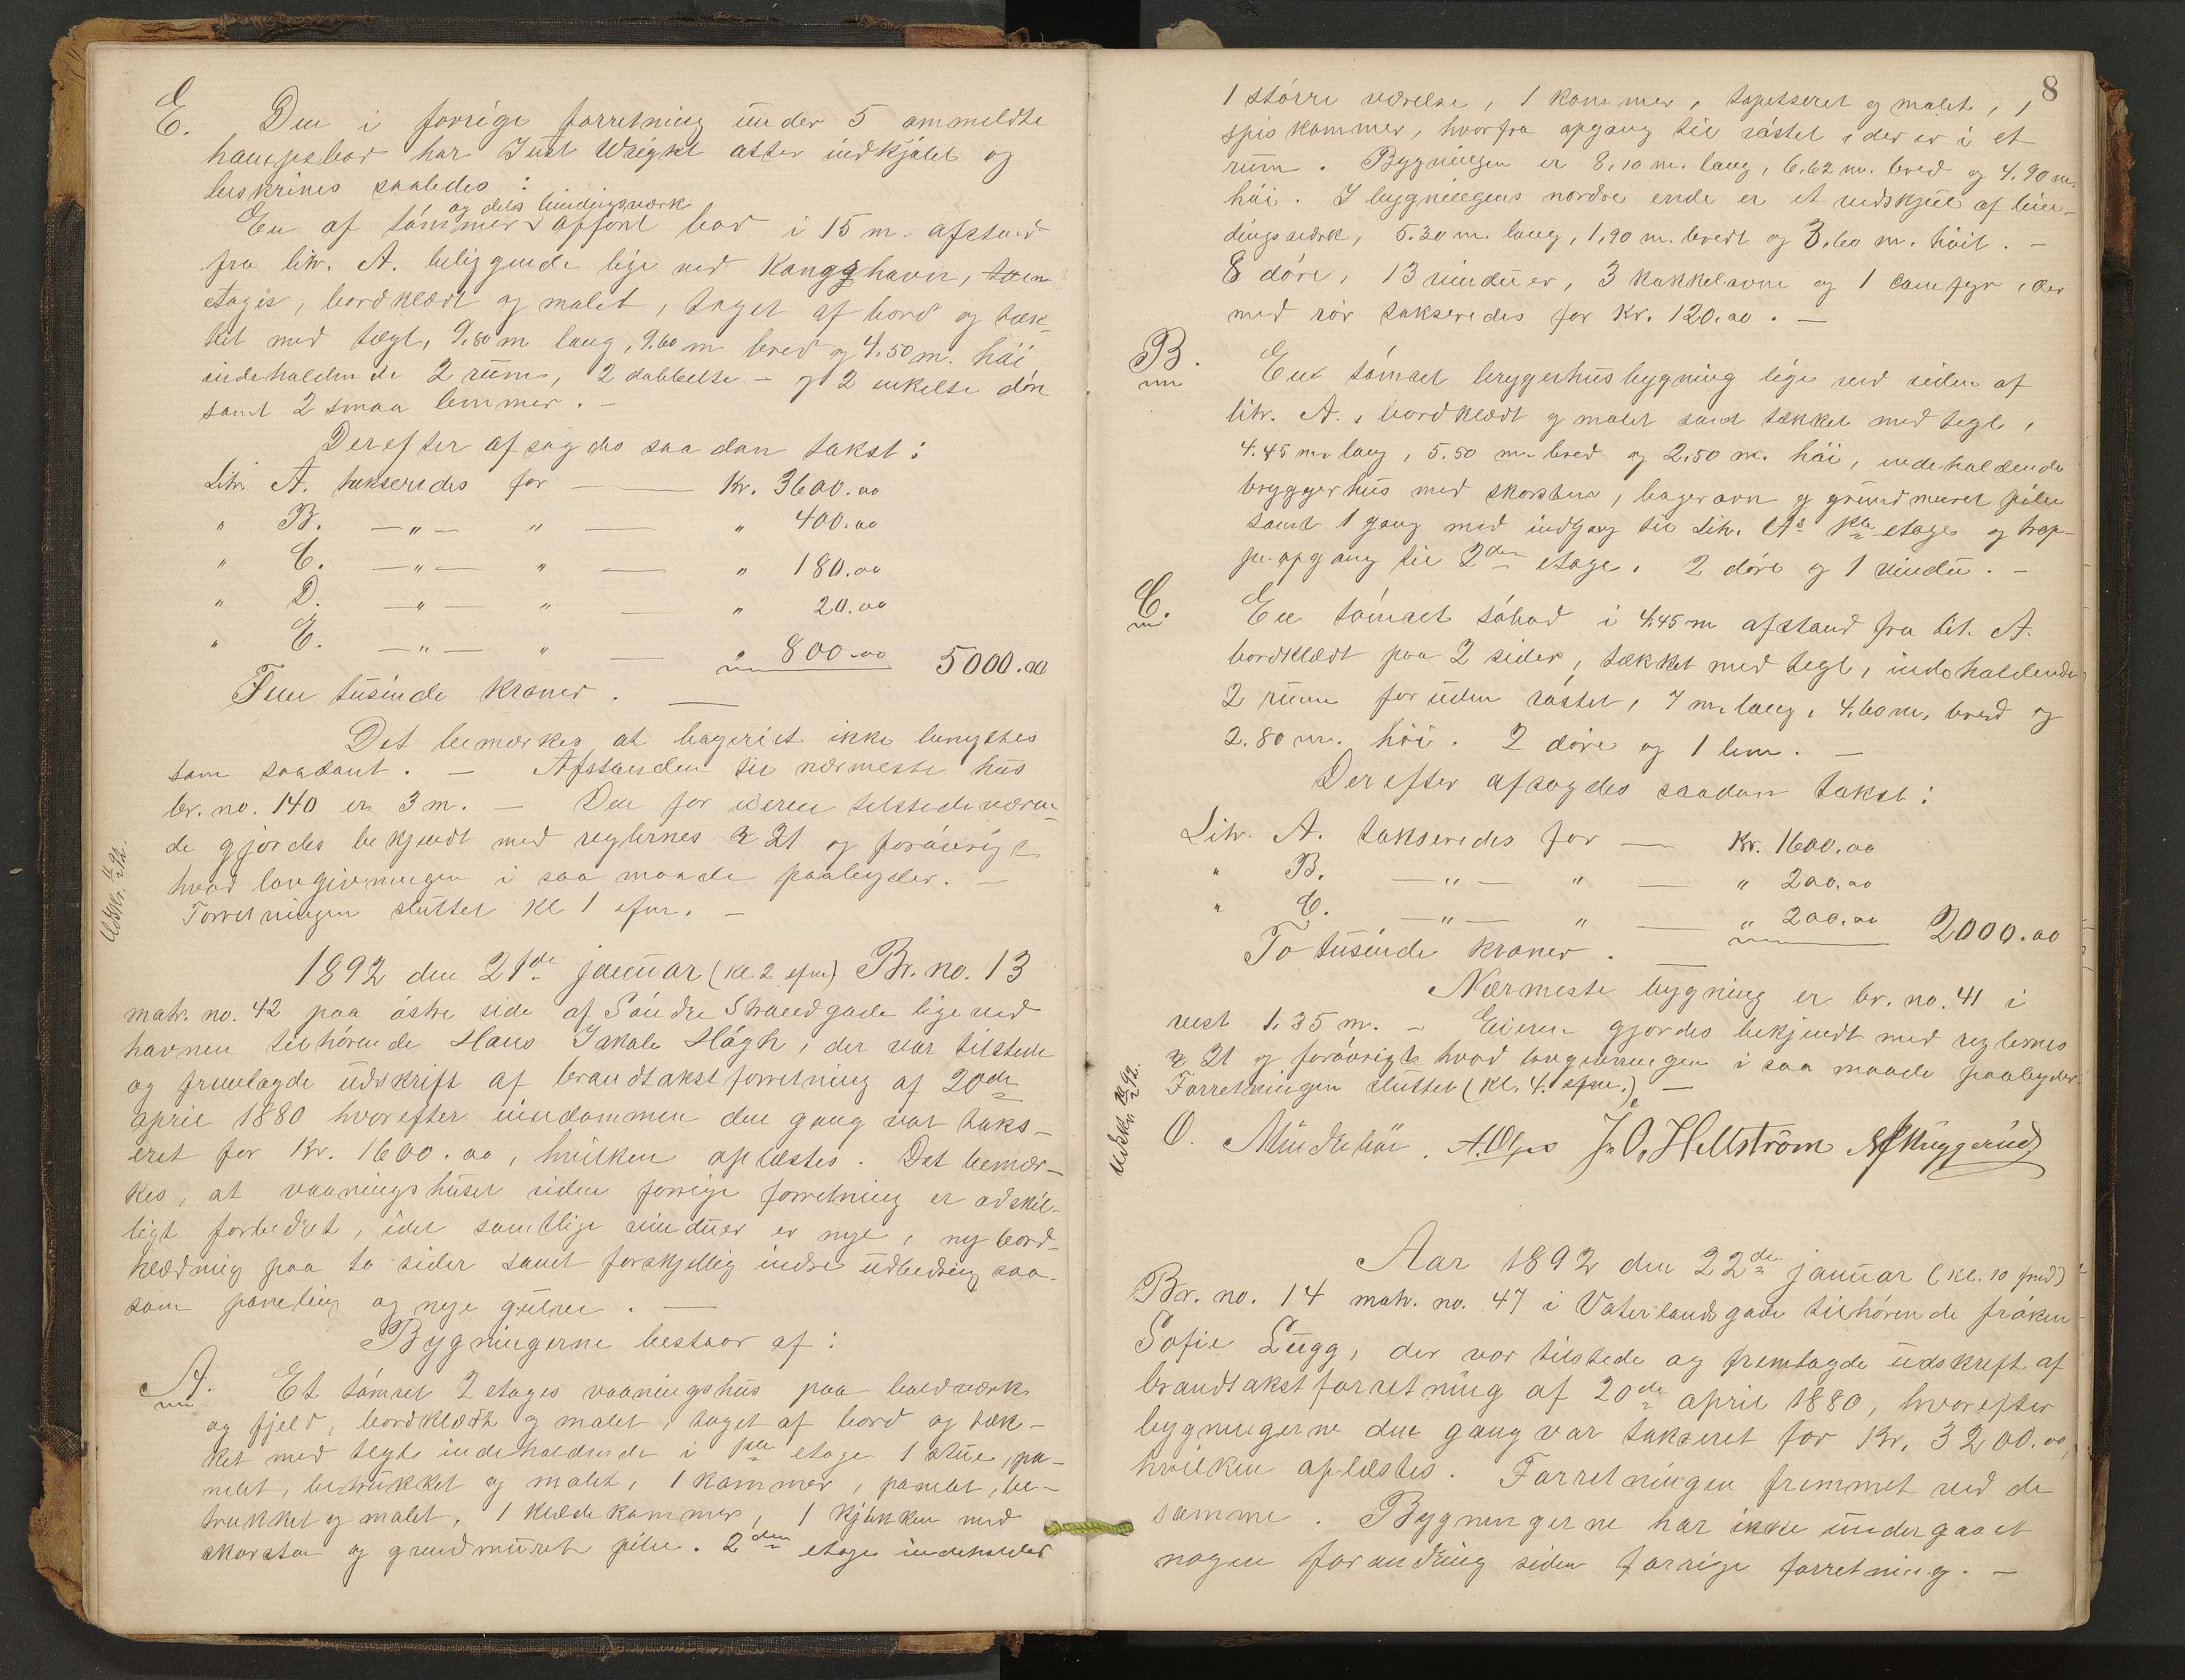 E. Den i forrige forretning under 5 ommeldte
hampebod har Just Wright atter indkjøbt og
beskrives saaledes:
og dels bindingsværk
En af tømmer opført bod i 15 m. afstand
fra litr. A. beliggende lige ved Kongshavn, to en
etages, bordklædt og malet, taget af bord og tæk-
ket med tegl, 9.80 m lang, 9.60 m bred og 4.50 m. høi
indeholdende 2 rum, 2 dobbelte - og 2 enkelte døre
samt 2 smaa lemmer. -
Derefter afsagdes saadan takst:
Litr. A. takseredes for — Kr. 3600.00
" B. — " — " — " 400.00
" C. — " — " — " 180.00
" D. — " — " — " 20.00
" E. — " — " — " 800.00 5000.00
Fem tusinde kroner. —
Det bemærkes, at bageriet ikke benyttes
som saadant. - Afstanden til nærmeste hus
br. no. 140 er 3 m. - Den for eieren tilstedeværen-
de gjordes bekjendt med reglernes § 21 og forøvrigt
hvad lovgivningen i saa maade paabyder. -
Forretningen sluttet kl 1 efm. -
1892 den 21de januar (kl. 2 efm) Br. no. 13
matr. no. 42 paa østre side af Søndre Strandgade lige ved
havnen tilhørende Hans Jakob Høgh, der var tilstede
og fremlagde udskrift af brandtakstforretning af 20de
april 1880 hvorefter eiendommen den gang var taks-
eret for Kr. 1600.00, hvilken oplæstes. Det bemær-
kes, at vaaningshuset siden forrige forretning er adskil-
ligt forbedret, idet samtlige vinduer er nye, ny bord-
klædning paa to sider samt forskjellig indre udbedring saa-
som paneling og nye gulve. —
Bygningerne bestaar af:
A. Et tømret 2 etages vaaningshus paa boldværk
og fjeld, bordklædt og malet, taget af bord og tæk-
ket med tegl indeholdende i 1ste etage 1 stue, pa-
nelet, betrukket og malet, 1 kammer, panelet, be-
trukket og malet, 1 klædekammer, 1 kjøkken med
skorsten og grundmuret pibe. 2den etage indeholder
8
1 større værelse, 1 kammer, tapetseret og malet, 1
spiskammer, hvorfra opgang til røstet, der er i et
rum. Bygningen er 8.10 m. lang, 6.62 m. bred og 4.90 m.
høi. I bygningens nordre ende er et vedskjul af bin-
dingsværk, 5.30 m. lang, 1.90 m. bredt og 3.60 m. høit. -
8 døre, 13 vinduer, 3 kakkelovne og 1 comfyr, der
med rør takseredes for Kr. 120.00. —
B. Ent tømret bryggerhusbygning lige ved siden af
litr. A., bordklædt og malet samt tækket med tegl,
4.45 m. lang, 5.50 m. bred og 2.50 m. høi, indeholdende
bryggerhus med skorsten, bagerovn og grundmuret pibe
samt 1 gang med indgang til Litr. A's 1ste etage og trap-
peopgang til 2den etage. 2 døre og 1 vindu. -
C. En tømret søbod i 4.45 m afstand fra lit. A.
bordklædt paa 2 sider, tækket med tegl, indeholdende
2 rum foruden røstet, 7 m. lang, 4.60 m. bred og
2.80 m. høi. 2 døre og 1 lem. —
Derefter afsagdes saadan takst:
Litr. A. takseredes for — Kr. 1600.00
" B. — " — " — " 200.00
" C. — " — " — " 200.00 2000.00
To tusinde kroner. —
Nærmeste bygning er br. no. 41 i
vest 1.35 m. - Eieren gjordes bekjendt med reglernes
§ 21 og forøvrigt hvad lovgivningen i saa maade paabyder.
Forretningen sluttet (kl. 4. efm.) —
O. J. O. Hellström
Aar 1892 den 22de januar (kl. 10 fmd)
Br. no. 14 matr. no. 47 i Vaterlandsgade tilhørende frøken
Sofie Lugg, der var tilstede og fremlagde udskrift af
brandtakstforretning af 20de april 1880, hvorefter
bygningerne den gang var takseret for Kr. 3200.00,
hvilken oplæstes. Forretningen fremmet ved de
samme. Bygningerne har ikke undergaaet
nogen forandring siden forrige forretning. -